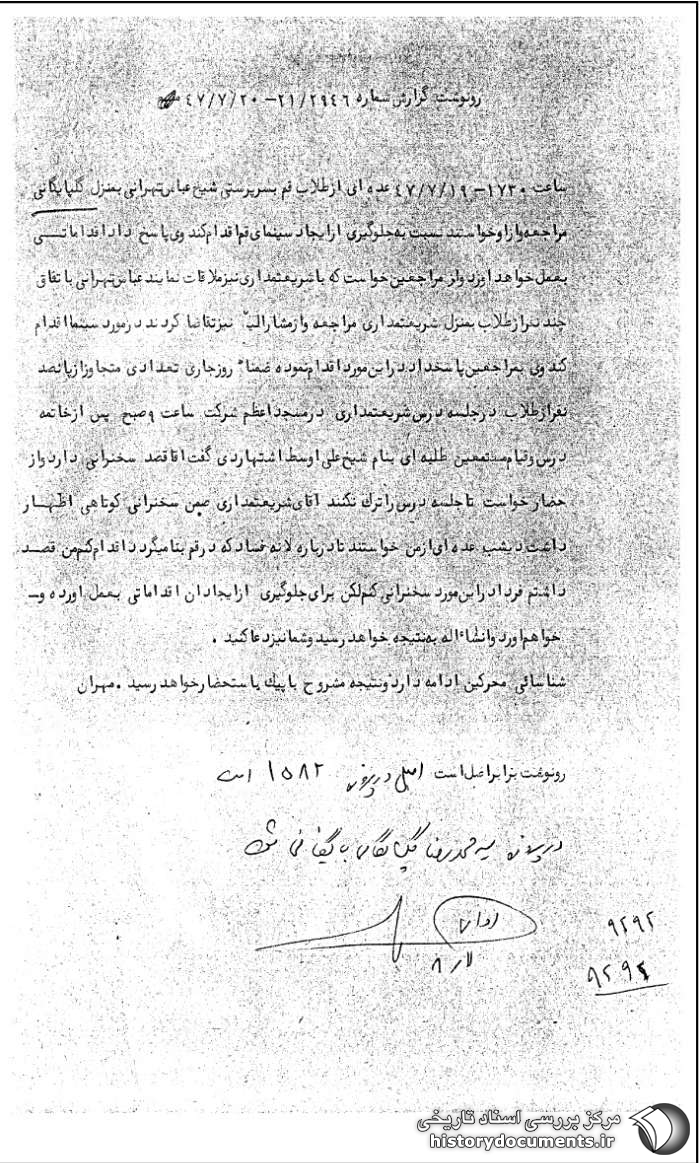 رونوشت گزارش شماره ۲۱/۲۹٤٦ – ٤۷/۷/۲۰
ساعت ۱۷۳۰ – ٤۷/۷/۱۹ عده ای ازطلاب قم بسرپرستی شیخ عباس تهرانی بمنزل گلپایگانی
مراجعه وازاوخواستند نسبت به جلوگیری ازایجاد سینمای قم اقدام کند وی پاسخ داد اقداماتــی
بعمل خواهد اورد واز مراجعین خواست که باشریعتمداری نیز ملاقات نمایند عباس تهرانی با تفاق
چند نفرازطلاب بمنزل شریعتمداری مراجعه وازمشارالیه نیزتقاضا کردند درمورد سینما اقدام
کند وی بمراجعین پاسخداد دراین مورد اقدام نموده ضمنا" روزجاری تعدادی متجاوز ازپانصد
نفرازطلاب درجلسه درس شریعتمداری درمسجد اعظم شرکت ساعت ۹ صبح پس ازخاتمه
درس وقیام مستمعین طلبه ای بنام شیخ علی اوسط اشتهاردی گفت اقا قصد سخنرانی دارد واز
حضار خواست تا جلسه درس راترك نکنند آقای شریعتمداری ضمن سخنرانی کوتاهی اظهــار
داشت دیشب عده ای ازمن خواستند تا درباره لانه فساد که درقم بنا میگردد اقدام کنم من قصــد
داشتم فردا دراین مورد سخنرانی کنم لکن برای جلوگیری ازایجاد ان اقداماتی بعمل اورده وــ
خواهم اورد وانشاءاله به نتیجه خواهد رسید وشما نیزدعا کنید .
شناسائی محرکین ادامه دارد ونتیجه مشروح با پیك باستحضار خواهد رسید . مهران
رونوشت برابراصل است اصل در پرونده ۱۵۸۲ است
در پرونده سید محمدرضا گلپایگانی بایگانی شود
۹۲۹۲
۹۲۹۲
مرکز بررسی اسناد تاریخی
historydocuments.ir